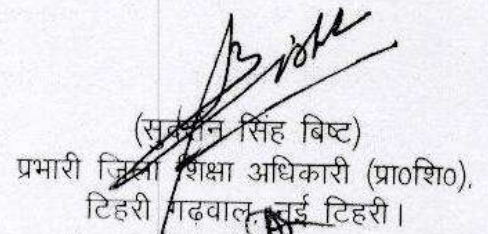 (सुदर्शन सिंह बिष्ट)
प्रभारी जिला शिक्षा अधिकारी (प्रा०शि०),
टिहरी गढ़वाल, नई टिहरी।